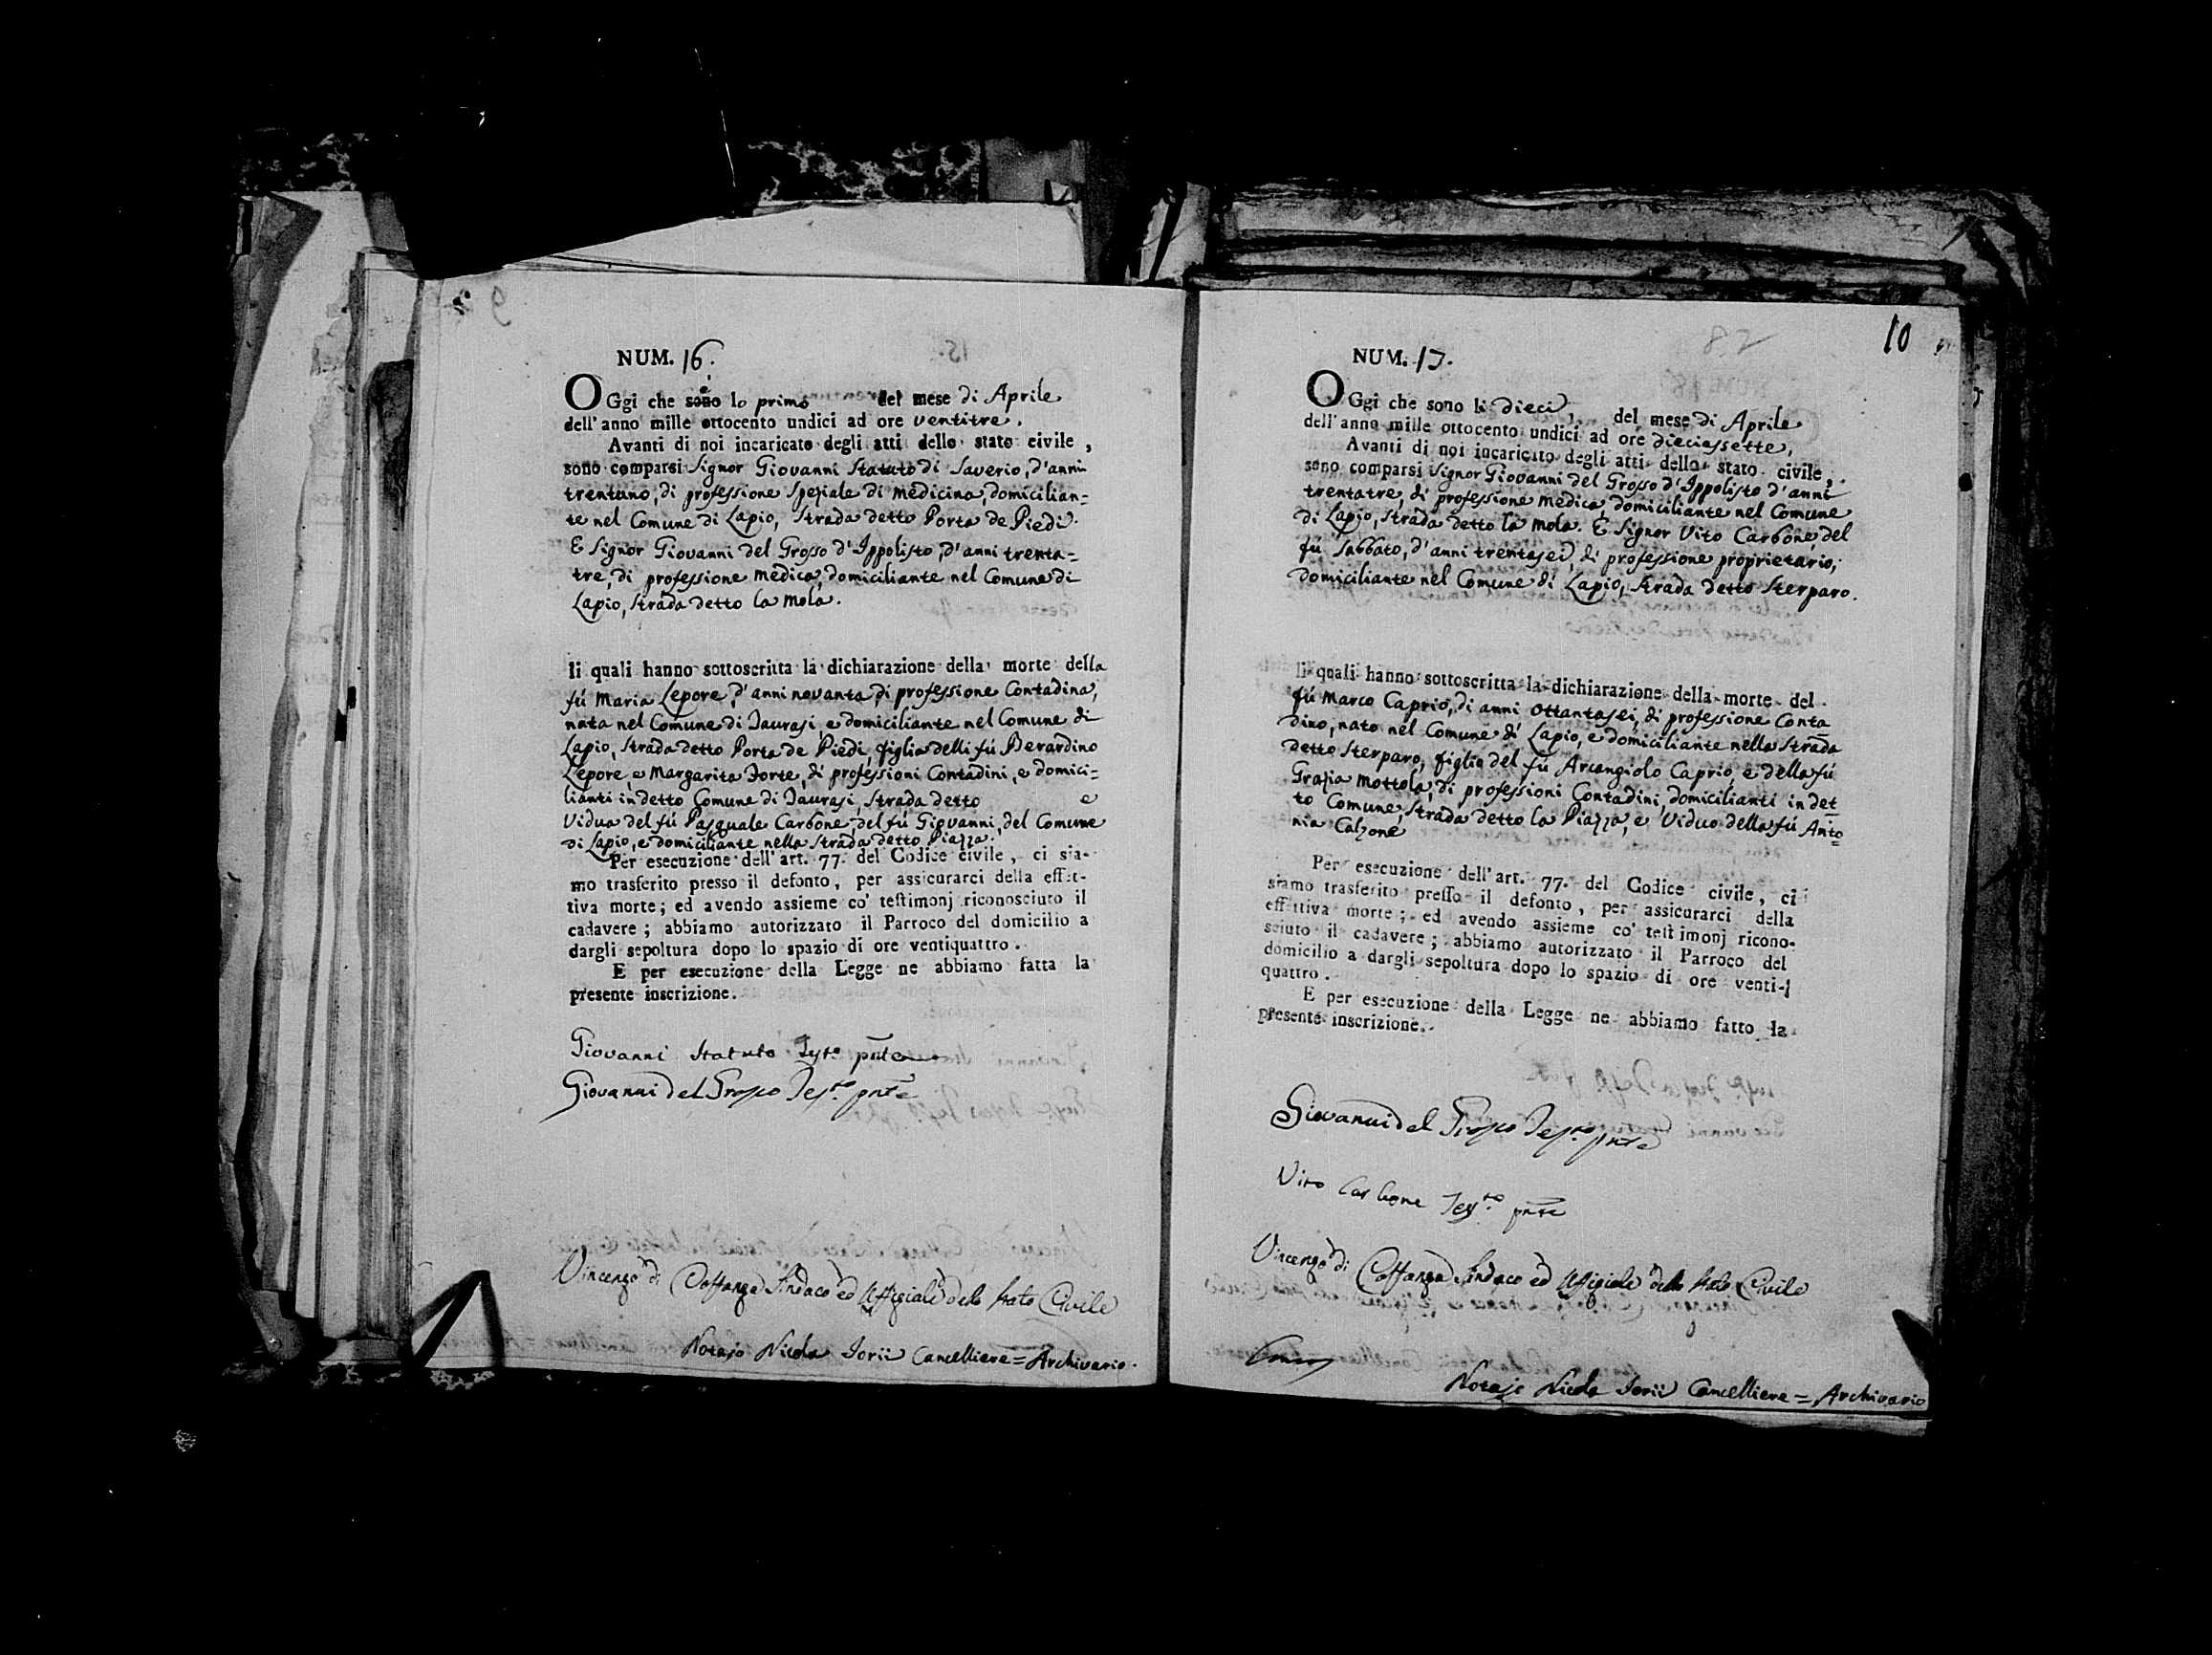 NUM. 16.
OGgi che sono è lo primo del mese di Aprile
dell' anno mille ottocento undici ad ore ventitre.
Avanti di noi incaricato degli atti dello stato civile,
sono comparsi Signor Giovanni Statuto di Saverio, d'anni
trentuno, di professione Speziale di medicina, domicilian=
te nel Comune di Lapio, Strada detto Porta de Piedi.
E Signor Giovanni del Grosso d'Ippolisto, d'anni trenta=
tre, di professione medico, domiciliante nel Comune di
Lapio, Strada detto la mola.
li quali hanno sottoscritta la dichiarazione della morte della
fú Maria Lepore, d'anni novanta, di professione Contadina,
nata nel Comune di Taurasi, e domiciliante nel Comune di
Lapio, Strada detto Porta de Piedi, figlia delli fú Berardino
Lepore, e Margarita Forte, di professioni Contadini, e domici=
lianti in detto Comune di Taurasi, Strada detto e
Vidua del fú Pasquale Carbone, del fú Giovanni, del Comune
di Lapio, e domiciliante nella Strada detto Piazza.
Per esecuzione dell' art. 77. del Codice civile, ci sia-
mo trasferito presso il defonto, per assicurarci della effet-
tiva morte; ed avendo assieme co' testimonj riconosciuto il
cadavere; abbiamo autorizzato il Parroco del domicilio a
dargli sepoltura dopo lo spazio di ore ventiquattro.
E per esecuzione della Legge ne abbiamo fatta la
presente inscrizione.
Giovanni Statuto Testo pñte
Giovanni del Grosso Testo pñte
Vincenzo di Costanza Sindaco ed Uffiziale dello stato Civile
Notajo Nicola Iorii Cancelliere = Archivario.
10
NUM. 17.
OGgi che sono li dieci, del mese di Aprile
dell' anno mille ottocento undici ad ore dieciassette,
Avanti di noi incaricato degli atti dello stato civile,
sono comparsi Signor Giovanni del Grosso d'Ippolisto d'anni
trentatre, di professione medico, domiciliante nel Comune
di Lapio, Strada detto la mola. E Signor Vito Carbone, del
fú Sabbato, d'anni trentasei, di professione proprietario,
domiciliante nel Comune di Lapio, Strada detto Sterparo.
li quali hanno sottoscritta la dichiarazione della morte del
fú Marco Caprio, di anni ottantasei, di professione Conta
dino, nato nel Comune di Lapio, e domiciliante nella Strada
detto Sterparo, figlio del fú Arcangiolo Caprio, e della fú
Grazia Mottola, di professioni Contadini, domicilianti in det
to Comune, Strada detto la Piazza, e Viduo della fú Anto
nia Calzone
Per esecuzione dell' art. 77. del Codice civile, ci
siamo trasferito presso il defonto, per assicurarci della
effettiva morte; ed avendo assieme co' testimonj ricono-
sciuto il cadavere; abbiamo autorizzato il Parroco del
domicilio a dargli sepoltura dopo lo spazio di ore venti-
quattro.
E per esecuzione della Legge ne abbiamo fatto la
presente inscrizione.
Giovanni del Grosso Testo pnte
Vito Carbone Testo pnte
Vincenzo di Costanza Sindaco ed Uffiziale dello stato Civile
Notajo Nicola Iorii Cancelliere = Archivario